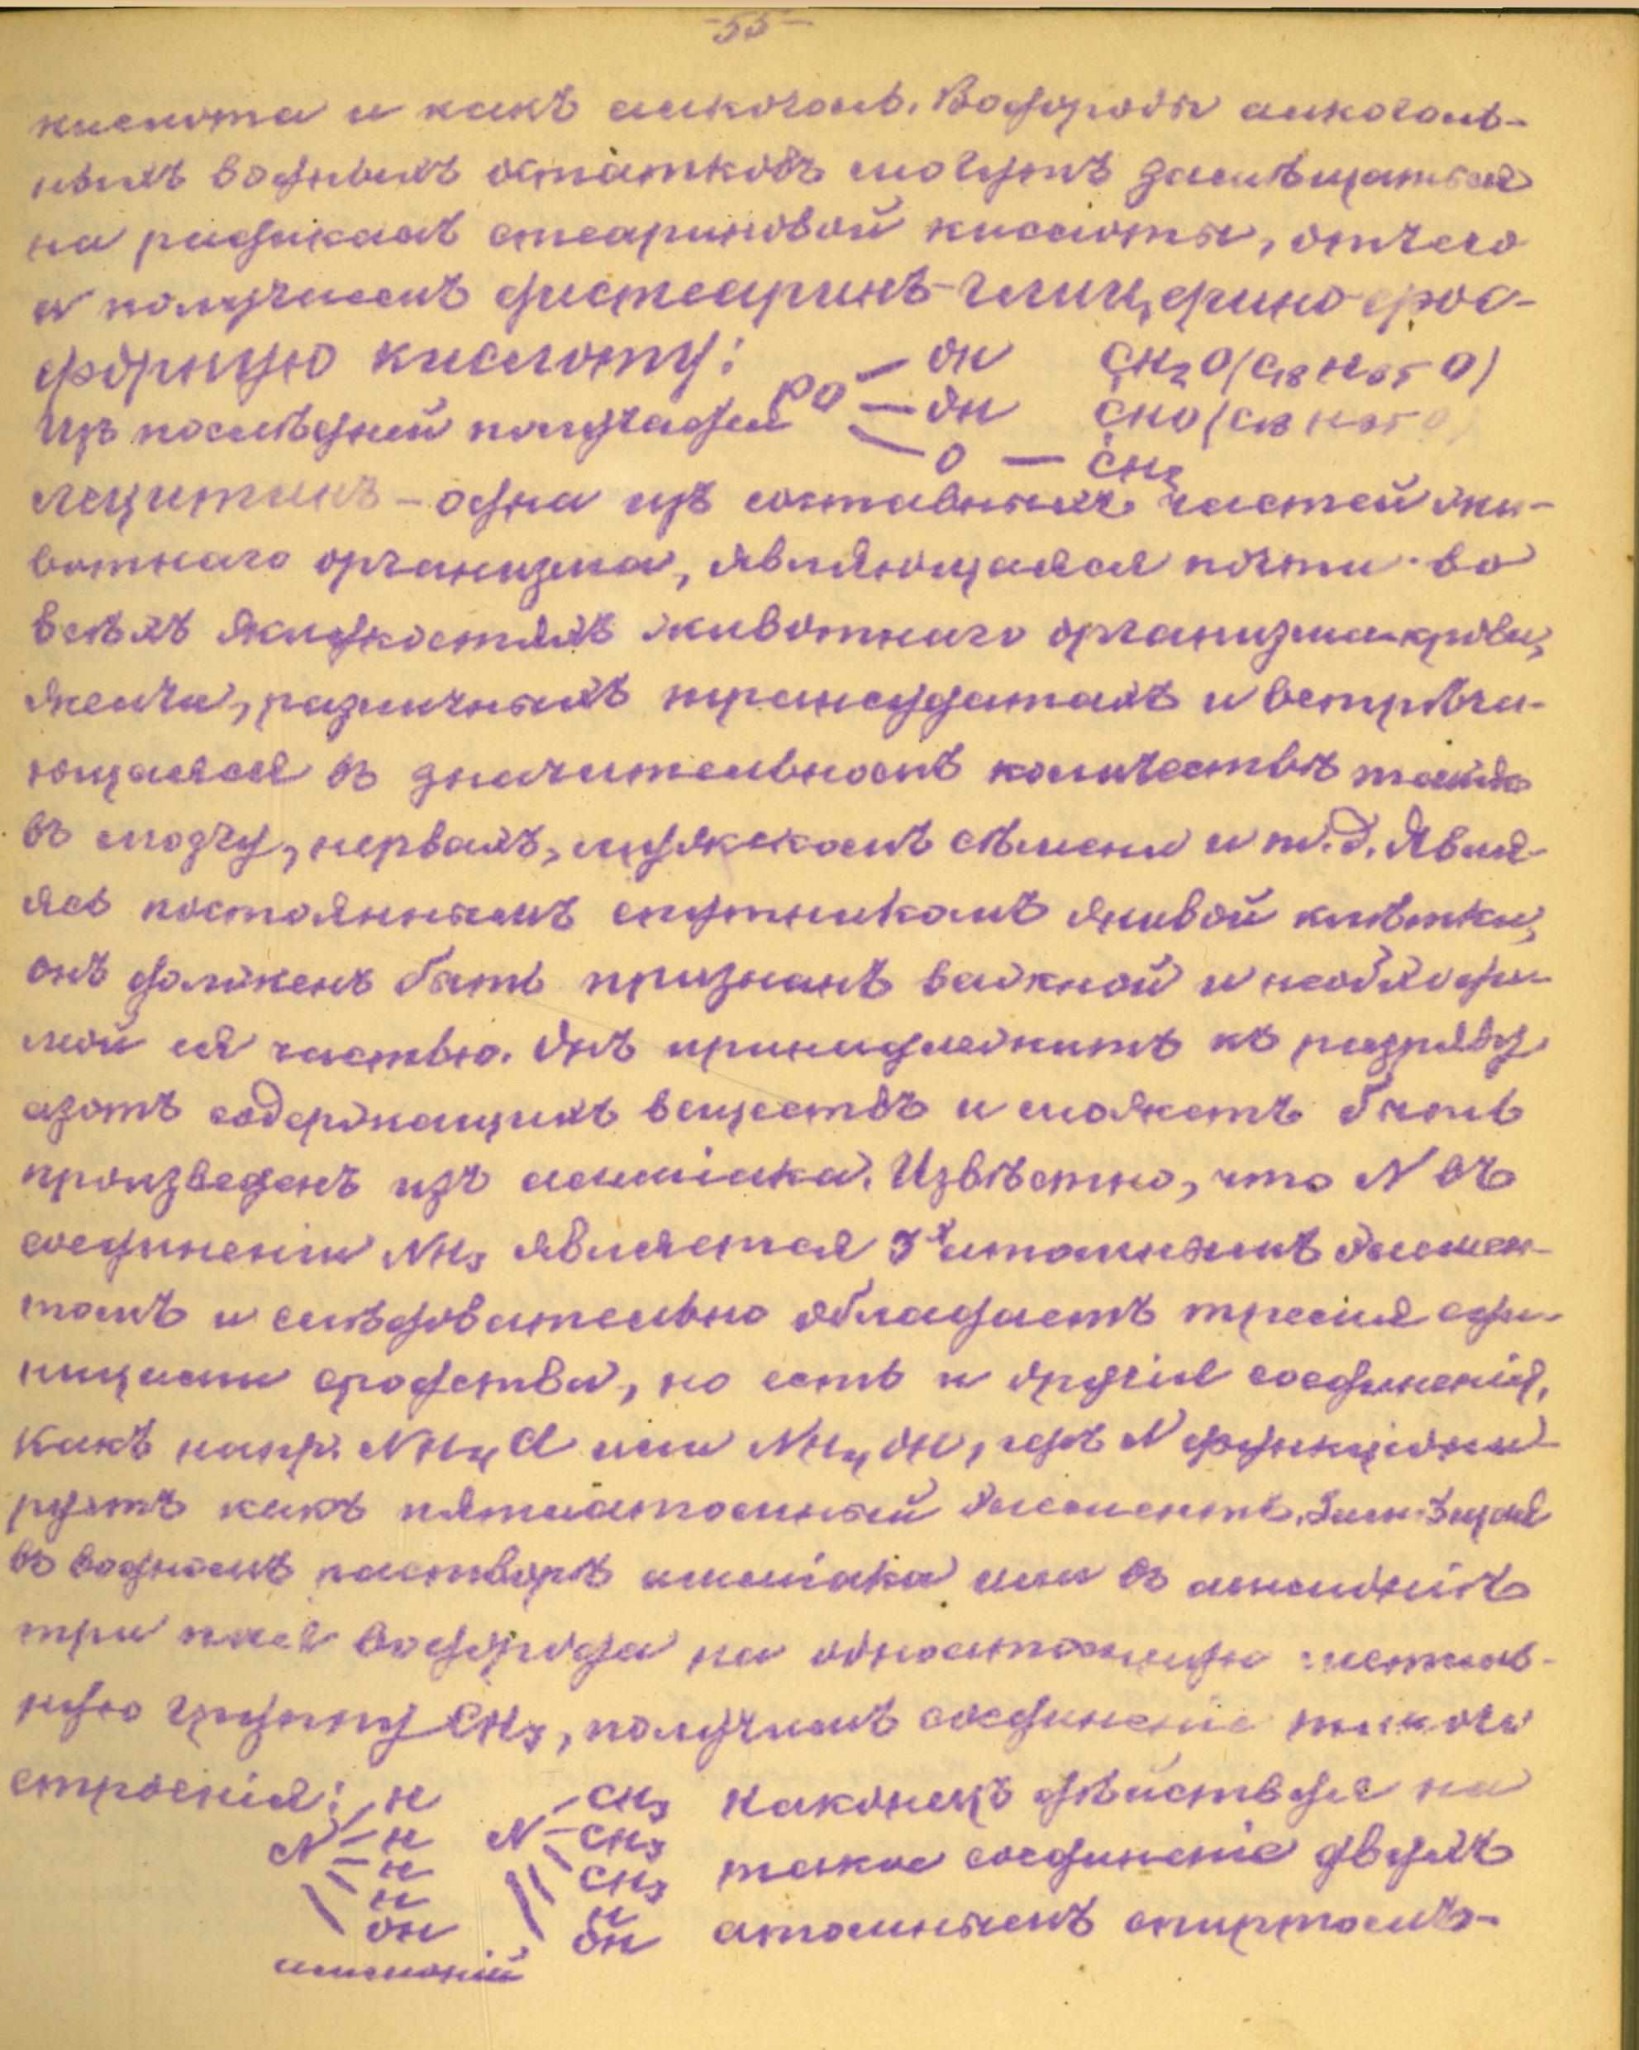 -55-
кислота и какъ алкоголь. Водороды алкоголь-
ныхъ водныхъ остатковъ могутъ замѣщаться
на радикалъ стеариновой кислоты, отчего
и получаемъ дистеаринъ-глицерино-фос-
форную кислоту:
PO — OH CH2O(C18H35O)
— OH CHO(C18H35O)
— O — CH2
Изъ послѣдней получается
лецитинъ - одна изъ составныхъ частей жи-
вотнаго организма, являющаяся почти во
всѣхъ жидкостяхъ животнаго организма-крови,
желчи, различныхъ транссудатахъ и встрѣча-
ющаяся въ значительномъ количествѣ также
въ мозгу, нервахъ, мужскомъ сѣмени и т.д. Явля-
ясь постояннымъ спутникомъ живой клѣтки,
онъ долженъ быть признанъ важной и необходи-
мой ея частью. Онъ принадлежитъ къ разряду
азотъ содержащихъ веществъ и можетъ быть
произведенъ изъ амміака. Извѣстно, что N въ
соединеніи NH3 является 3х атомнымъ элемен-
томъ и слѣдовательно обладаетъ тремя еди-
ницами сродства, но есть и другія соединенія,
какъ напр. NH4Cl или NH4OH, гдѣ N функціони-
руетъ какъ пятиатомный элементъ. Замѣщая
въ водномъ растворѣ амміака или въ аммоніѣ
три пая водорода на одноатомную метиль-
ную группу CH3, получимъ соединеніе такого
строенія:
N H H H H OH
аммоній
N CH3 CH3 CH3 H OH
Наконецъ дѣйствуя на
такое соединеніе двухъ
атомнымъ спиртомъ-